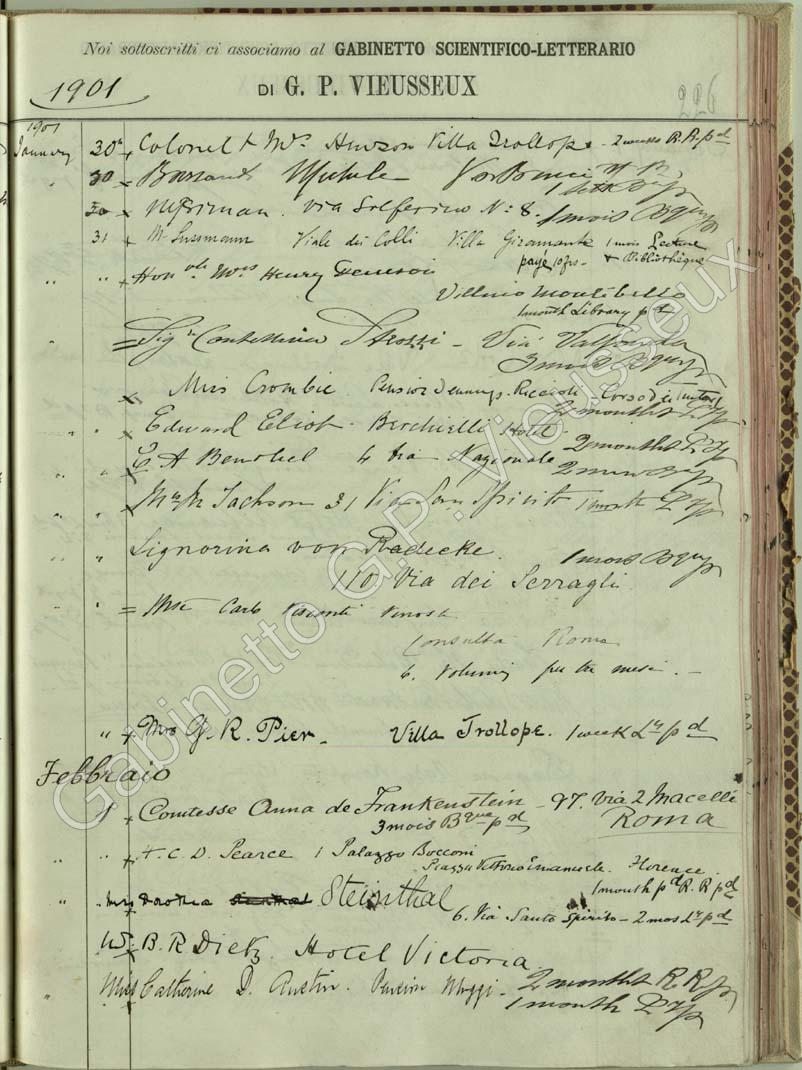 Noi sottoscritti ci associamo al GABINETTO SCIENTIFICO-LETTERARIO
1901
DI G. P. VIEUSSEUX
226
1901
January 30 Colonel & Mrs Hewson Villa Trollope - 2 weeks R.R. pd
30 Michele
30 Merriman. Via Solferino No 8. 1 mois Bque
31 Mr Sussmann Viale dei Colli Villa Giramonte 1 mois Lecture
payé 10 frs. & Bibliothèque
" " Honble Mrs Henry
Villino Montebello
1 month Library pd
" Contessina Strozzi - Via Valfonda
3 mois Bque
Miss Crombie Pension Jennings-Riccioli Corso dei Tintori
2 months
" " Edward Eliot - Berchielli Hotel - 2 months
" " E A 4 Via Nazionale
" " Jackson 31 Via Santo Spirito 1 month
" " Signorina von Radecke. 1 mois Bque
110 Via dei Serragli
" " = Carlo Visconti Venosta
Consulta Roma
6. Volumi per tre mesi. -
" Mrs G. R. Pier - Villa Trollope. 1 week Lry pd
Febbraio
1 Comtesse Anna de Frankenstein - 97. Via 2 Macelli
3 mois Bque pd Roma
" " C. D. Pearce 1 Palazzo Bocconi
Piazza Vittorio Emanuele. Florence.
1 month pd R. R pd
" " Dorothea Steinthal
6. Via Santo Spirito - 2 mos Lry pd
W. B. R Dietz. Hotel Victoria
Miss Catherine D. Austin. Pension 2 months R R
1 month
Gabinetto G.P. Vieusseux